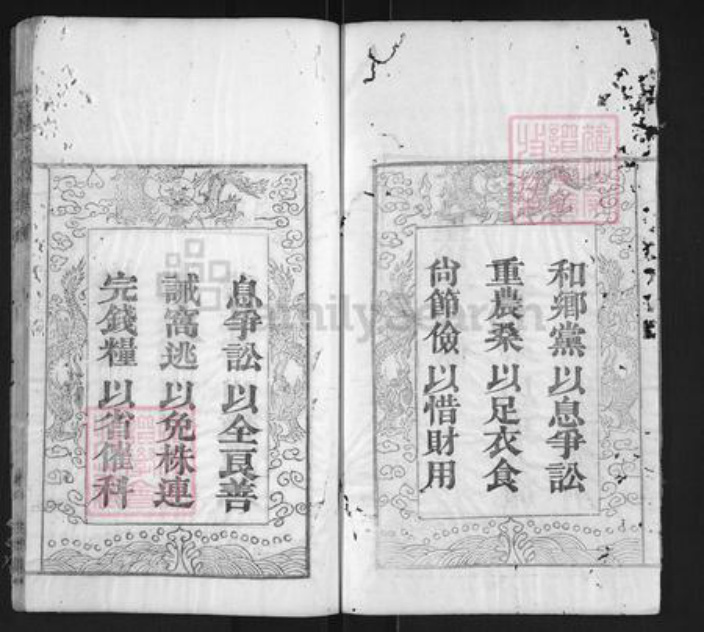 和鄉黨以息爭訟
重農桑以足衣食
尙節儉以惜財用
息爭訟以全良善
誡窩逃以免株連
完錢糧以省催科
FamilySearch